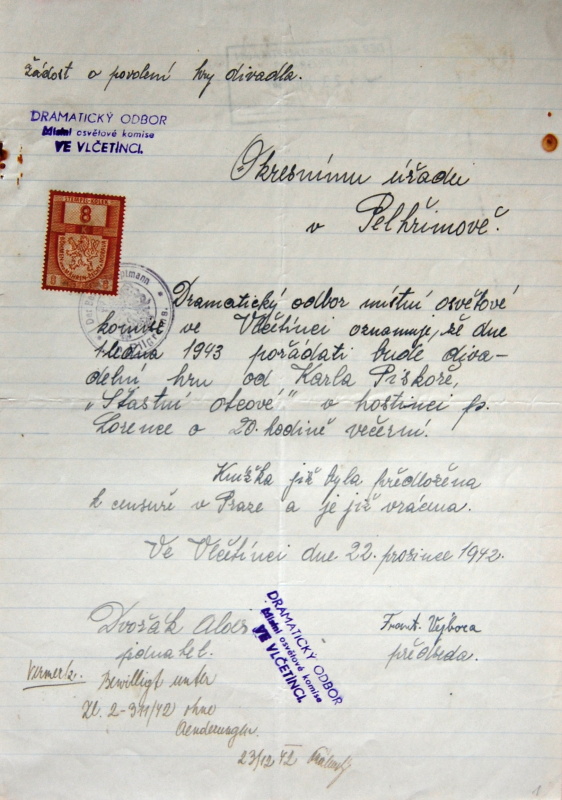 žádost o povolení hry divadla.
DRAMATICKÝ ODBOR
Místní osvětové komise
VE VLČETÍNCI.
Okresnímu úřadu
v Pelhřimově.
STEMPEL-KOLEK
8
K
Dramatický odbor místní osvětové
komise ve Vlčetínci oznamuje, že dne
1. ledna 1943 pořádati bude diva-
delní hru od Karla Piskoře,
„Šťastní otcové" v hostinci p.
Lorence o 20. hodině večerní.
Knížka již byla předložena
k censuře v Praze a je již vrácena.
Ve Vlčetínci dne 22. prosince 1942.
Dvořák Alois
jednatel.
Frant. Výbora
předseda.
DRAMATICKÝ ODBOR
Místní osvětové komise
VE VLČETÍNCI.
Vermerk.
Bewilligt unter
Zl. 2-341/42 ohne
Aenderungen.
23/12 42